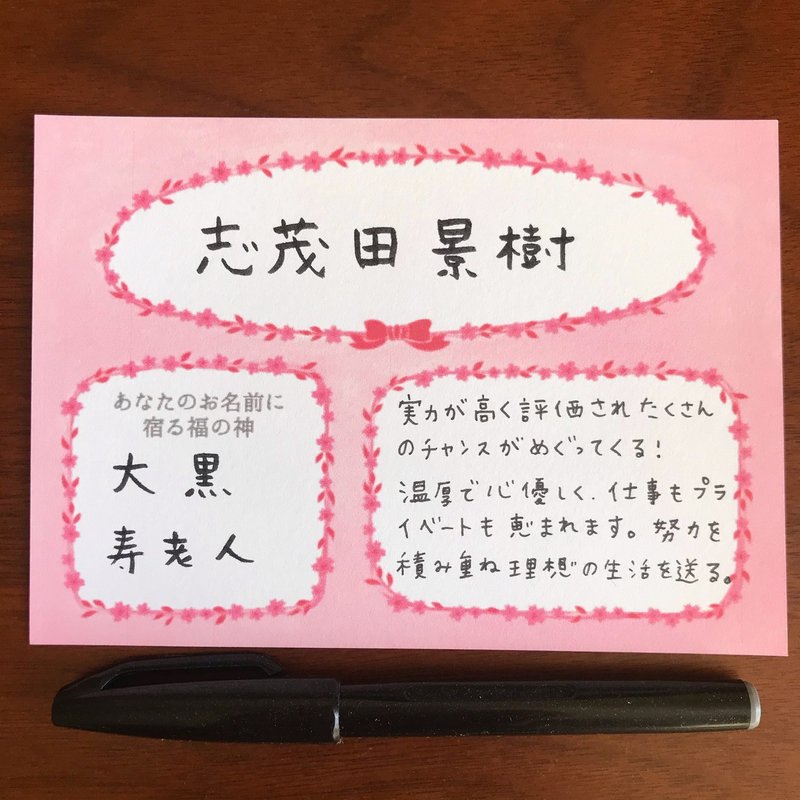 志茂田景樹
あなたのお名前に
宿る福の神
大黒
寿老人
実力が高く評価されたくさん
のチャンスがめぐってくる！
温厚で心優しく、仕事もプラ
イベートも恵まれます。努力を
積み重ね理想の生活を送る。